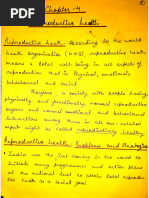 Chapter-4
Reproductive health
①
Reproductive health: According to the world
health organisation (WHO) reproductive health
means a total well-being in all aspects of
reproduction that is Physical, emotional,
behavioural and social.
Therefore, a society with people having
physically and functionally normal reproductive
organs and normal emotional and behavioural
interactions among them in all sex-related
aspect might be called reproductively healthy.
Reproductive health: Problems and Strategies
• India was the first country in the world to
initiate many programmes and action plans
at the national level to attain total reprodu-
ctive health as a social goal.